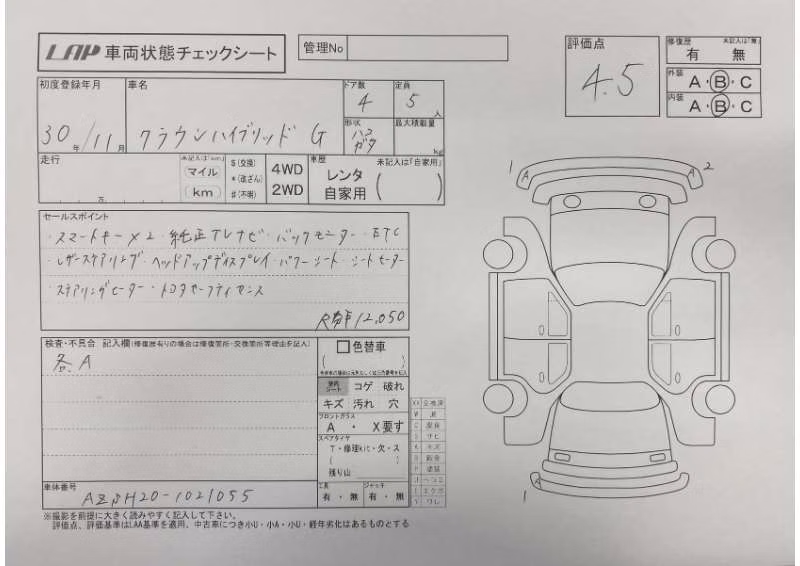 LAP 車両状態チェックシート
管理No
評価点
4.5
修復歴 未記入は「無」
有 無
外装
A・B・C
内装
A・B・C
初度登録年月
30年/11月
車名
クラウンハイブリッド G
ドア数
4
定員
5人
形状
ハコガタ
最大積載量
kg
走行
万
未記入は「km」
マイル
km
$(交換)
*(改ざん)
#(不明)
4WD
2WD
車歴 未記入は「自家用」
レンタ
自家用
( )
セールスポイント
・スマートキー×2・純正TVナビ・バックモニター・ETC
・レザーステアリング・ヘッドアップディスプレイ・パワーシート・シートヒーター
・ステアリングヒーター・トヨタセーフティセンス
R券 12,050
検査・不具合 記入欄(修復歴有りの場合は修復箇所・交換箇所等理由を記入)
各A
色替車
( )
コゲ 破れ
キズ 汚れ 穴
フロントガラス
A ・ X要す
スペアタイヤ
T・修理kit・欠・ス
( )
残り山
工具
有・無
ジャッキ
有・無
車体番号
AZSH20-1021055
※撮影を前提に大きく読みやすく記入して下さい。
評価点、評価基準はLAA基準を適用、中古車につき小U・小A・小U・経年劣化はあるものとする
1 A
A 2
A
1